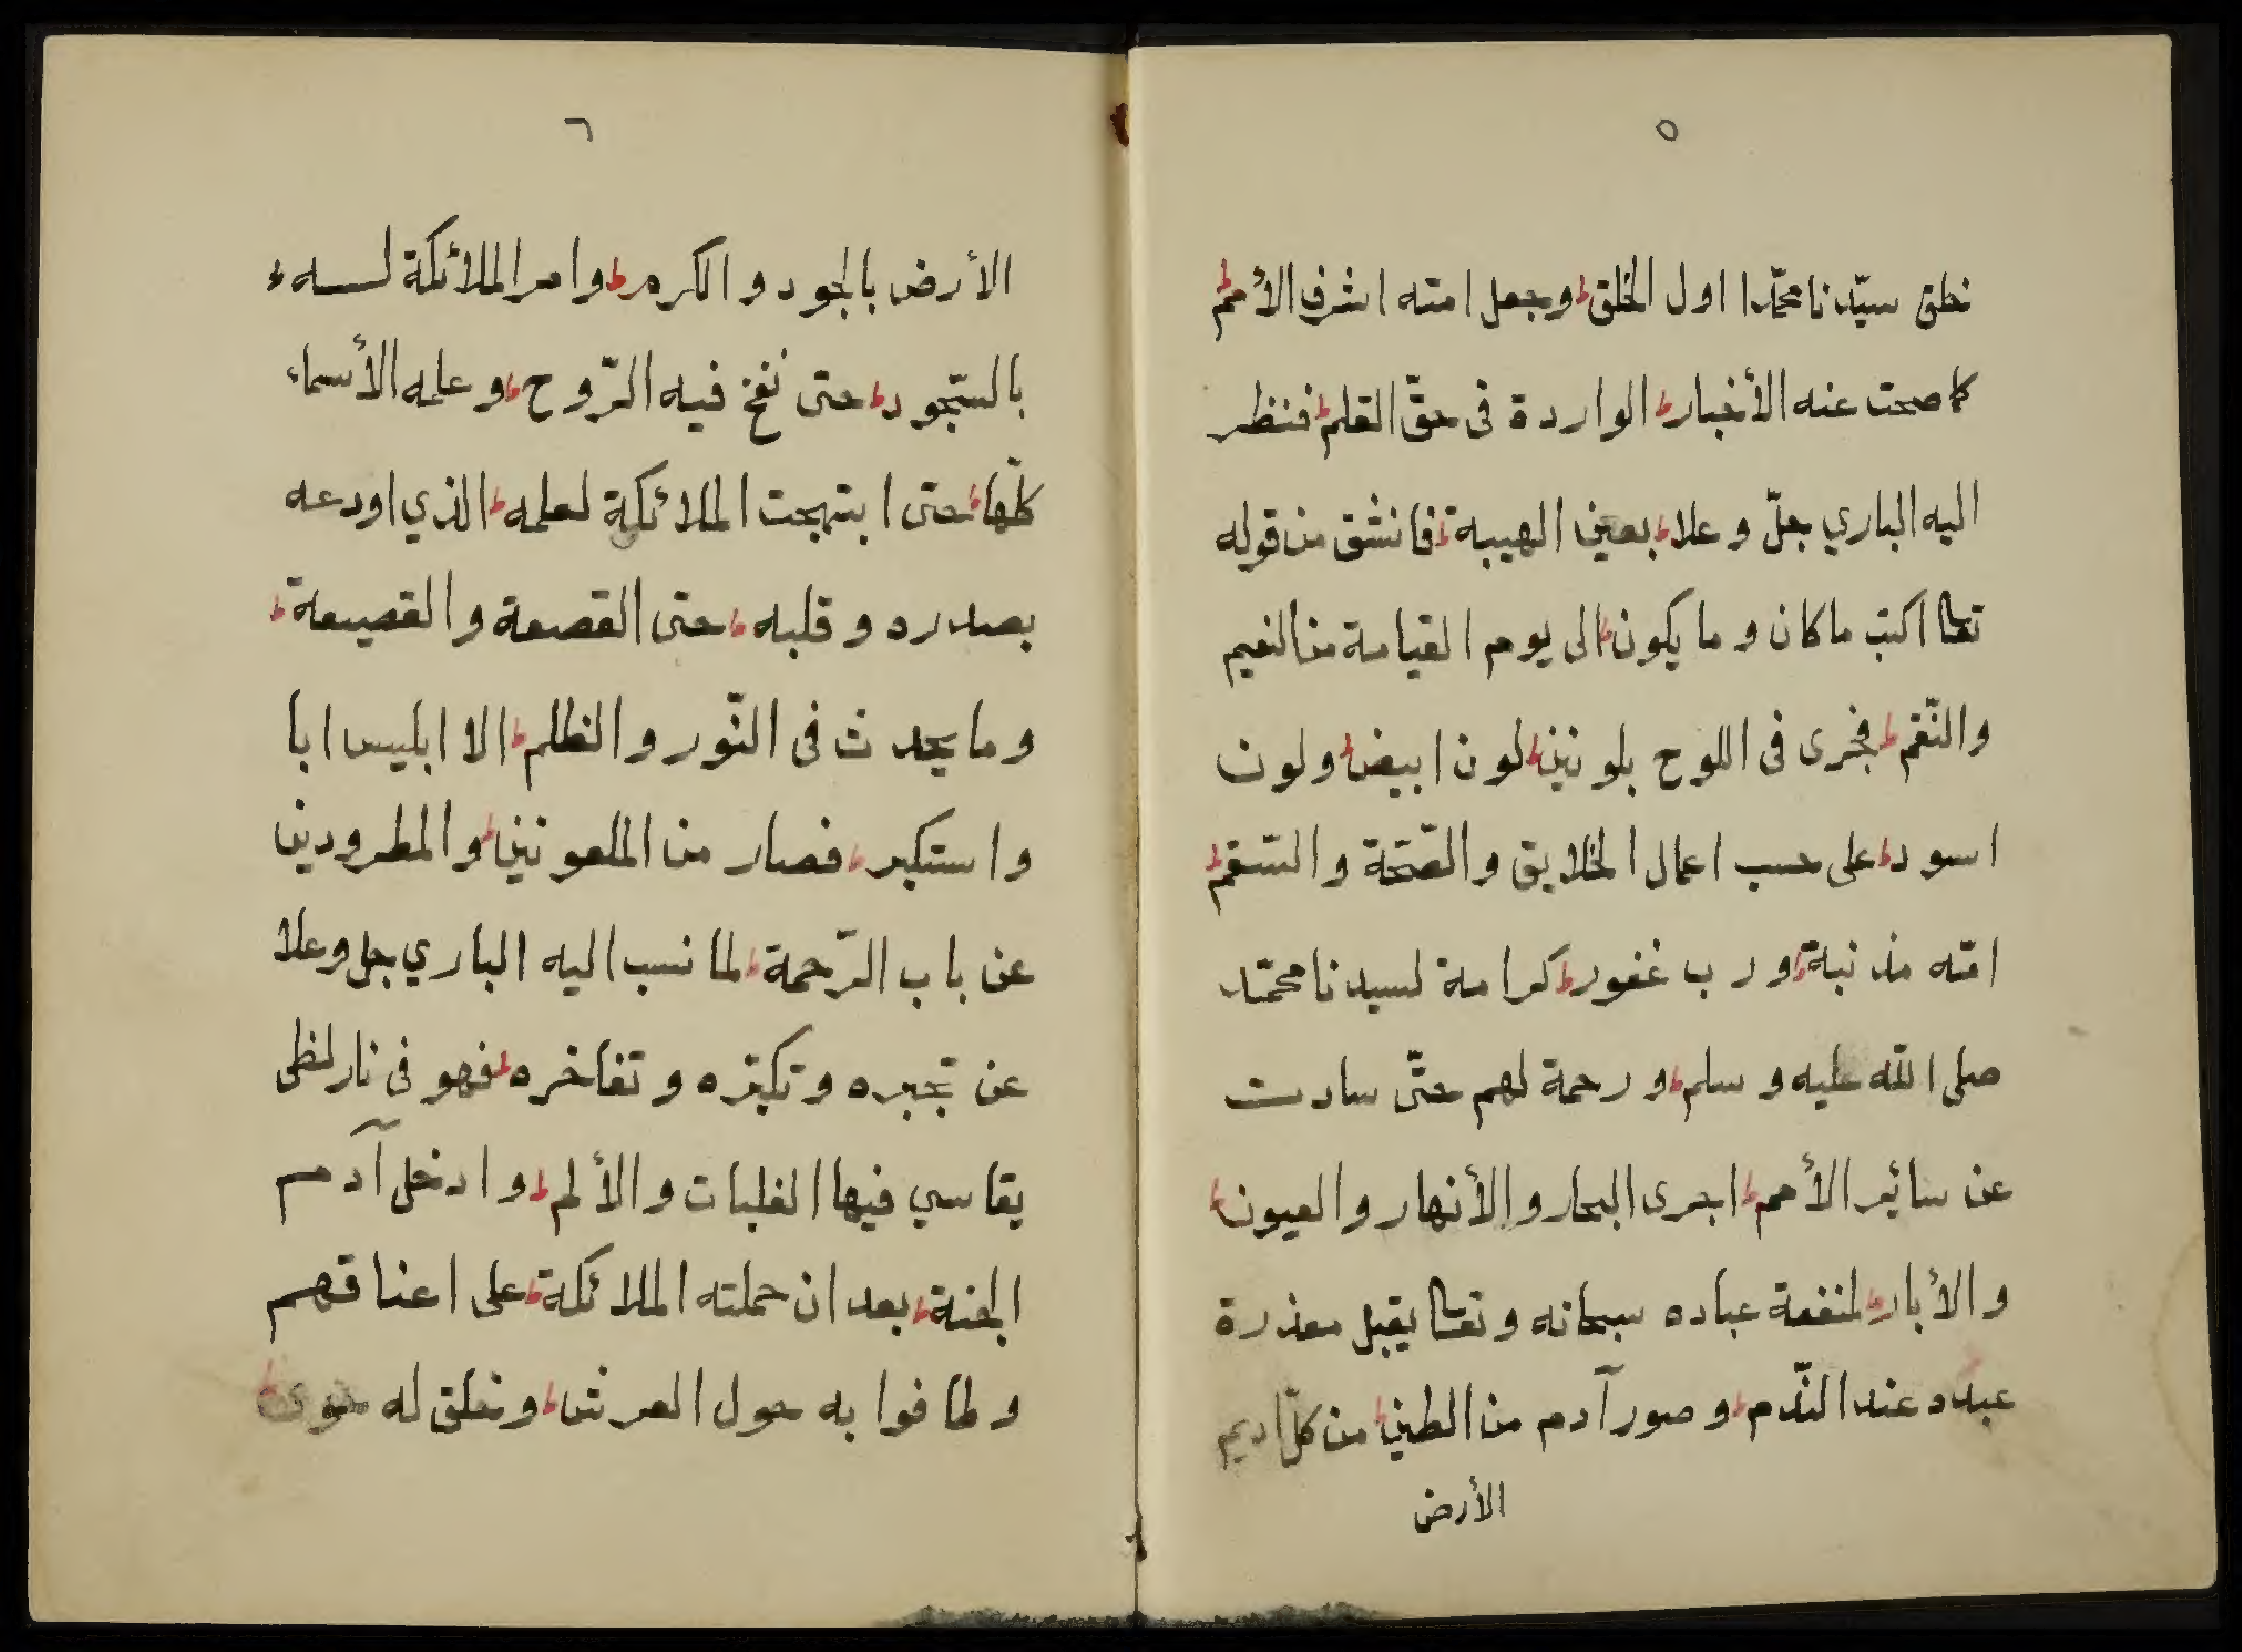 ٥
خلق سيّدنا محمّدا اول الخلق وجعل امته اشرف الأمم
كما صحت عنه الأخبار الواردة فى حقّ القلم فنظر
اليه الباري جلّ وعلا بعين الهيبة فانشق من قوله
تعالى اكتب ما كان وما يكون الى يوم القيامة من النعيم
والنّقم فجرى فى اللوح بلونين لون ابيض ولون
اسود على حسب اعمال الخلايق والصّحّة والسّقم
امّة مذنبة ورب غفور كرامة لسيدنا محمّد
صلى اللّه عليه وسلم ورحمة لهم حتّى سادت
عن سائير الأمم اجرى البحار والأنهار والعيون
والأبار لمنفعة عباده سبحانه وتعالى يقبل معذرة
عبده عند النّدم وصور آدم من الطين من كلّ اديم
الأرض
٦
الأرض بالجود والكرم وامر الملائكة له
بالسّجود حتى نفخ فيه الرّوح وعلمه الأسماء
كلّها حتى ابتهجت الملائكة لعلمه الذي اودعه
بصدره وقلبه حتى القصعة والقصيعة
وما يحدث فى النّور والظلم الا ابليس ابا
واستكبر فصار من الملعونين والمطرودين
عن باب الرّحمة لما نسب اليه الباري جل وعلا
عن تجبره وتكبّره وتفاخره فهو فى نار لظى
يقاسي فيها الغلبات والألم وادخل آدم
الجنة بعد ان حملته الملائكة على اعناقهم
وطافوا به حول العرش وخلق له